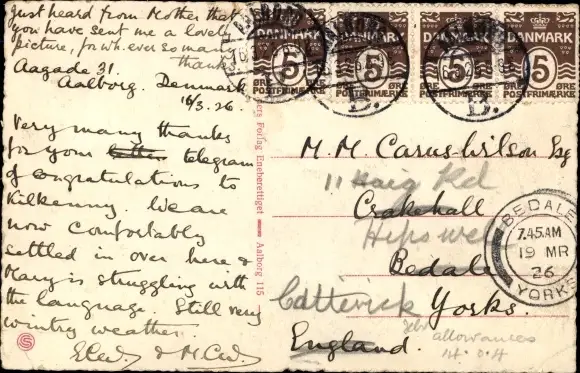 Just heard from Mother that
you have sent me a lovely
picture, for wh. ever so many
thanks
Aagade 31.
Aalborg. Denmark
16/3.26.
Very many thanks
for your letter telegram
of congratulations to
Kilkenny. We are
now comfortably
settled in over here &
Mary is struggling with
the language. Still very
wintry weather.
Forlag Eneberettiget
Aalborg 115
S
DANMARK
5
ØRE
POSTFRIMÆRKE
DANMARK
5
ØRE
POSTFRIMÆRKE
DANMARK
5
ØRE
POSTFRIMÆRKE
DANMARK
5
ØRE
POSTFRIMÆRKE
B.
B.
M. M. Carus-Wilson Esq
11 Haig Rd
Crakehall
Hipswell
Bedale
Catterick Yorks.
England.
allowances
BEDALE
7.45.AM
19 MR
26
YORKS